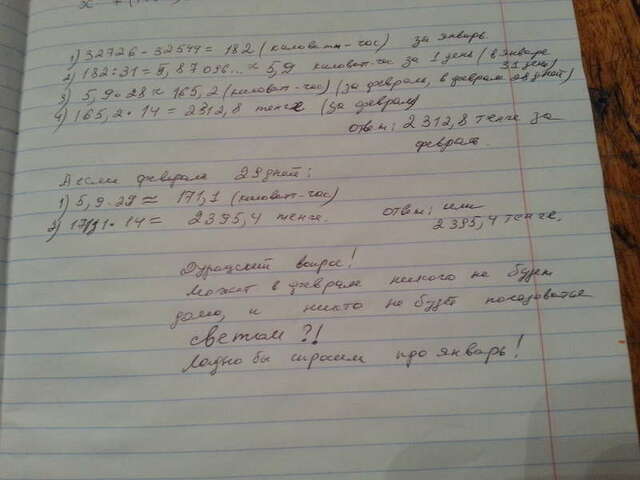 1) 32726 - 32544 = 182 (киловатт-час) за январь.
2) 182:31 = 5,87096... ≈ 5,9 киловатт-час за 1 день (в январе 31 день)
3) 5,9 · 28 ≈ 165,2 (киловатт-час) (за февраль, в феврале 28 дней)
4) 165,2 · 14 = 2312,8 тенге (за февраль)
ответ: 2312,8 тенге за
февраль.
А если февраль 29 дней:
1) 5,9 · 29 ≈ 171,1 (киловатт-час)
2) 171,1 · 14 = 2395,4 тенге. ответ: или
2395,4 тенге.
Дурацкий вопрос!
Может в феврале никого не будет
дома, и никто не будет пользоваться
светом?!
Ладно бы спросили про январь!